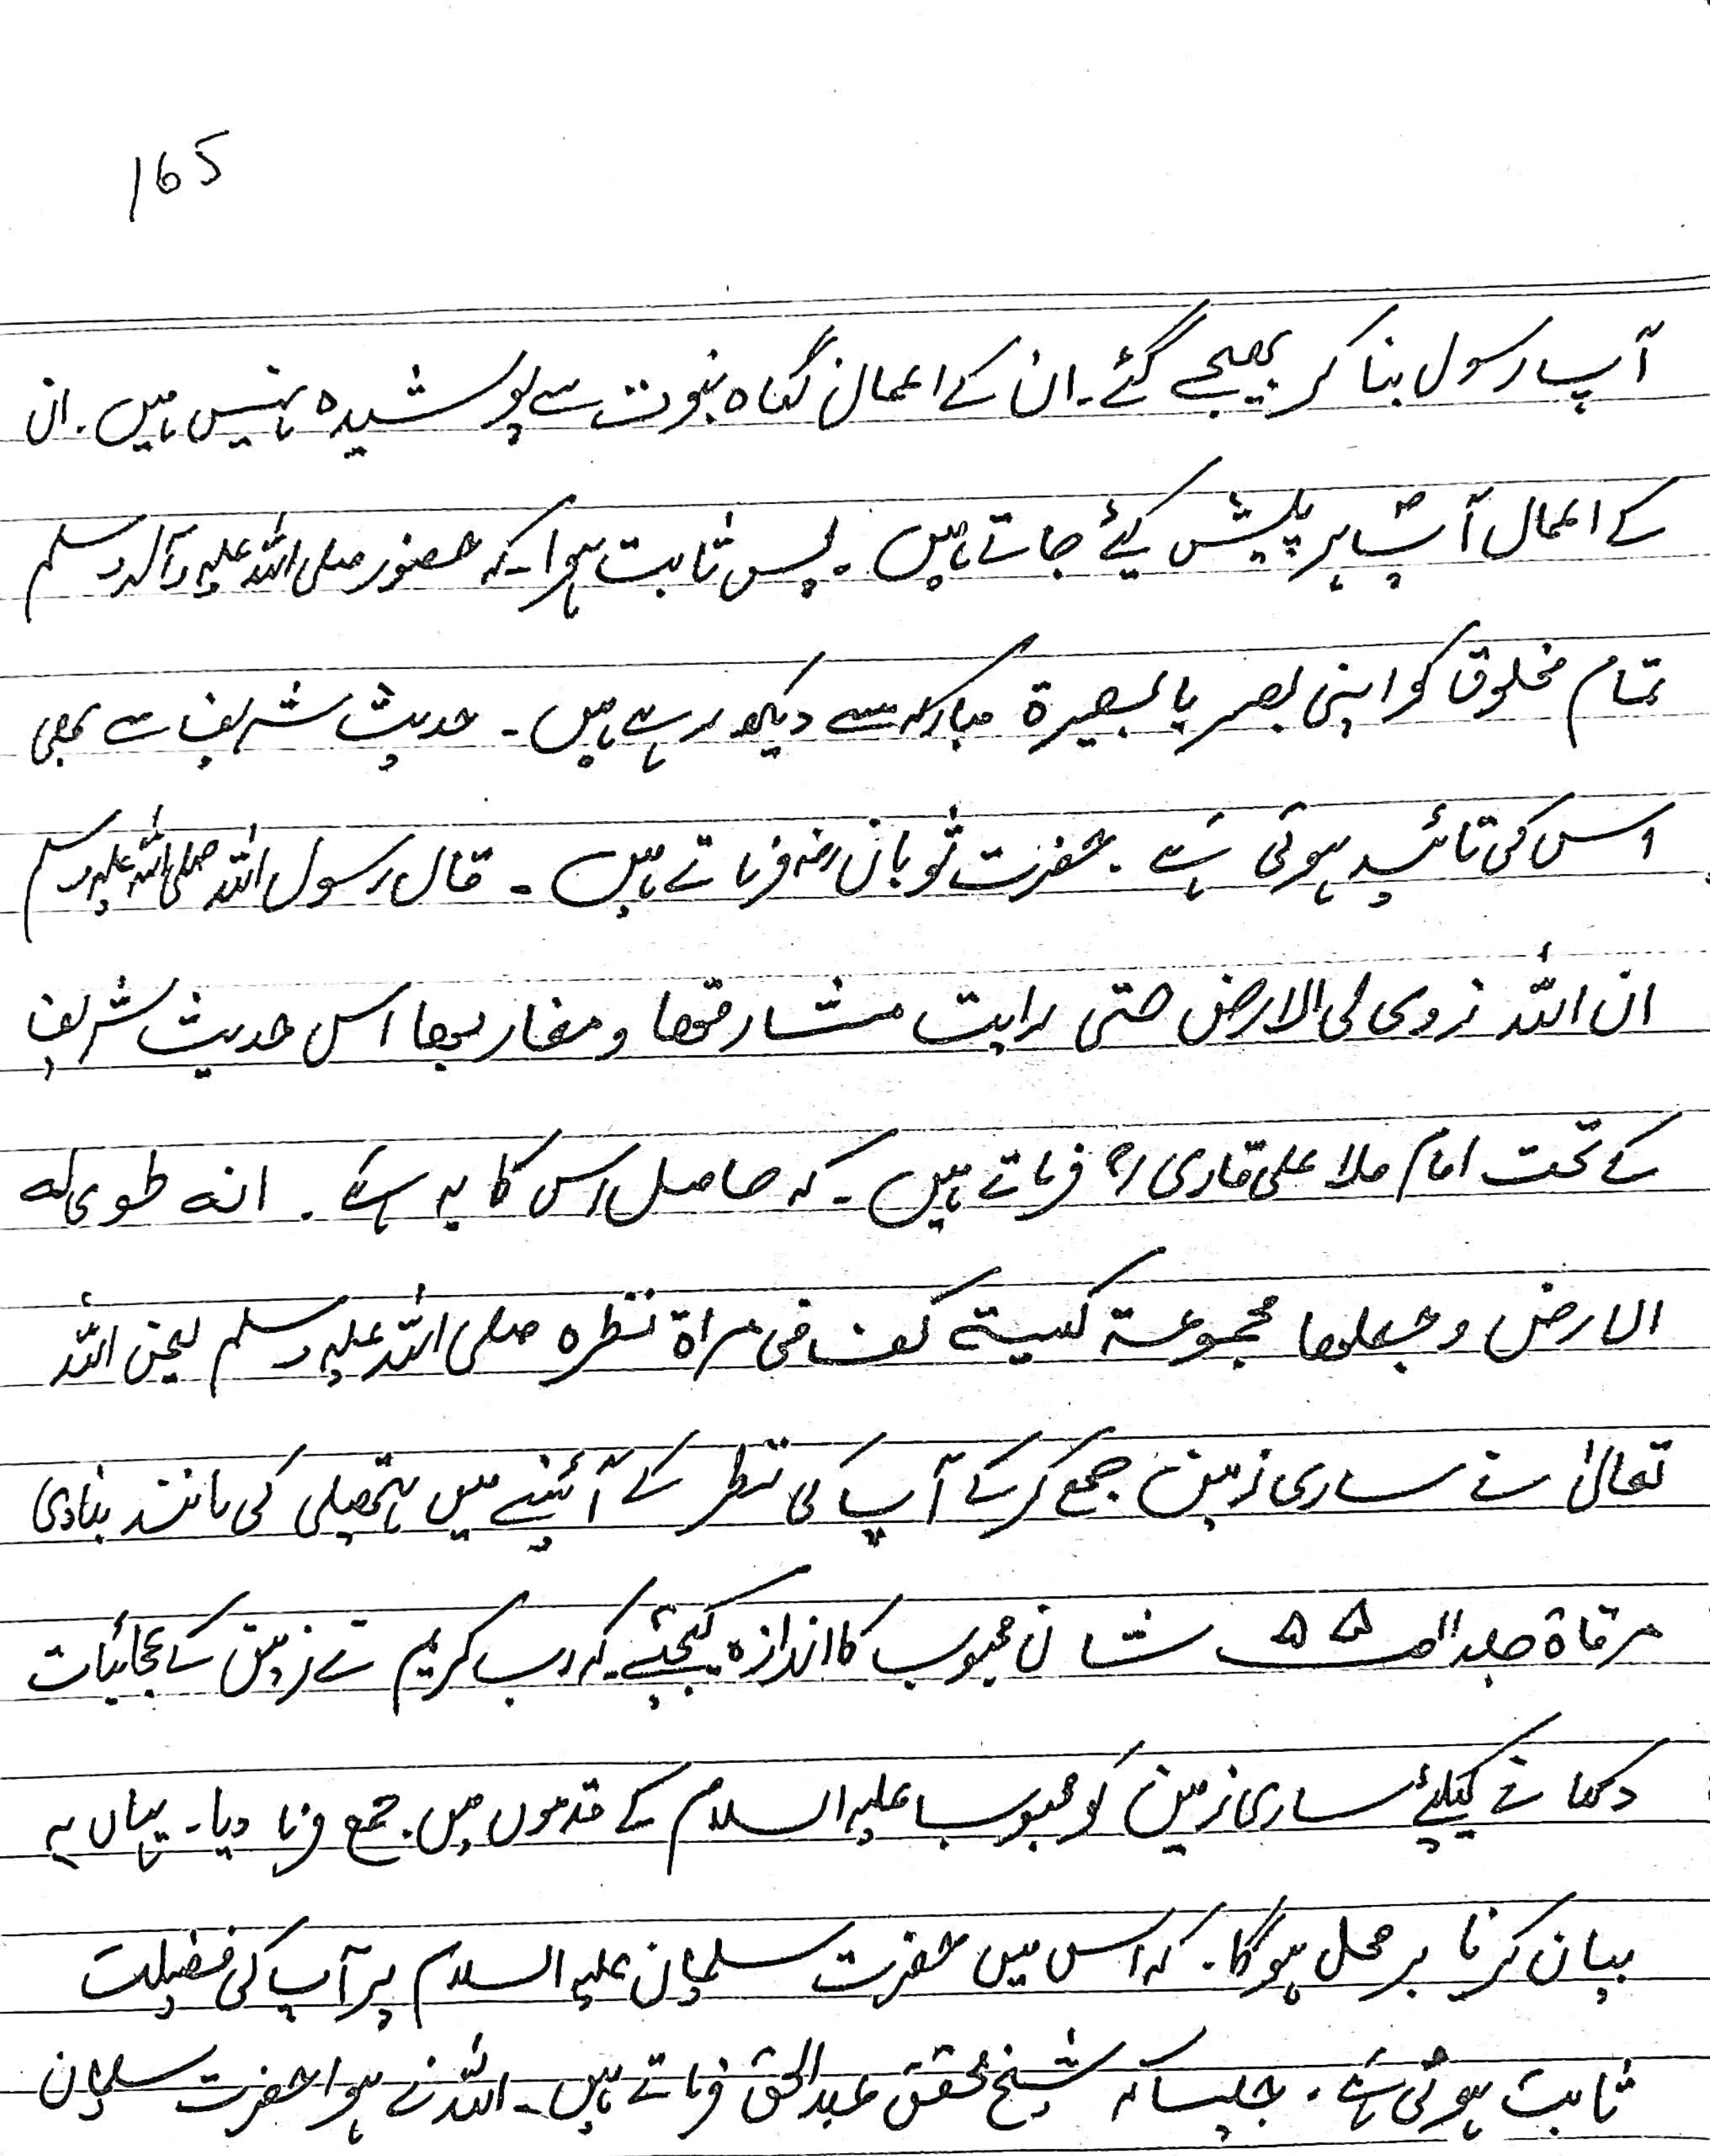 165
آپ رسول بنا کر بھیجے گئے۔ ان کے اعمال نگاہ نبوت سے پوشیدہ نہیں ہیں۔ ان
کے اعمال آپؐ پر پیش کیئے جاتے ہیں۔ پس ثابت ہوا۔ کہ حضور صلی اللہ علیہ وآلہ وسلم
تمام مخلوق کو اپنی بصر یا بصیرۃ مبارکہ سے دیکھ رہے ہیں۔ حدیث شریف سے بھی
اس کی تائید ہوتی ہے۔ حضرت ثوبان رضہ فرماتے ہیں۔ قال رسول اللہ صلی اللہ علیہ وسلم
ان اللہ زوی لی الارض حتی رایت مشارقھا و مغاربھا اس حدیث شریف
کے تحت امام ملا علی قاری رح فرماتے ہیں۔ کہ حاصل اس کا یہ ہے۔ انہ طوی لہ
الارض وجعلھا مجموعۃ کھیئۃ کف فی مراۃ نظرہ صلی اللہ علیہ وسلم یعنی اللہ
تعالیٰ نے ساری زمین جمع کر کے آپ کی نظر کے آئینے میں ہتھیلی کی مانند بنا دی
مرقاۃ جلد ۱۱ صـ ۵۵ شان محبوب کا اندازہ کیجئیے۔ کہ رب کریم نے زمین کے عجائبات
دکھانے کیلئے ساری زمین کو محبوب علیہ السلام کے قدموں میں جمع فرما دیا۔ یہاں یہ
بیان کرنا بر محل ہوگا۔ کہ اس میں حضرت سلیمان علیہ السلام پر آپ کی فضیلت
ثابت ہوئی ہے۔ جیسا کہ شیخ محقق عبدالحق فرماتے ہیں۔ اللہ نے ہوا حضرت سلیمان